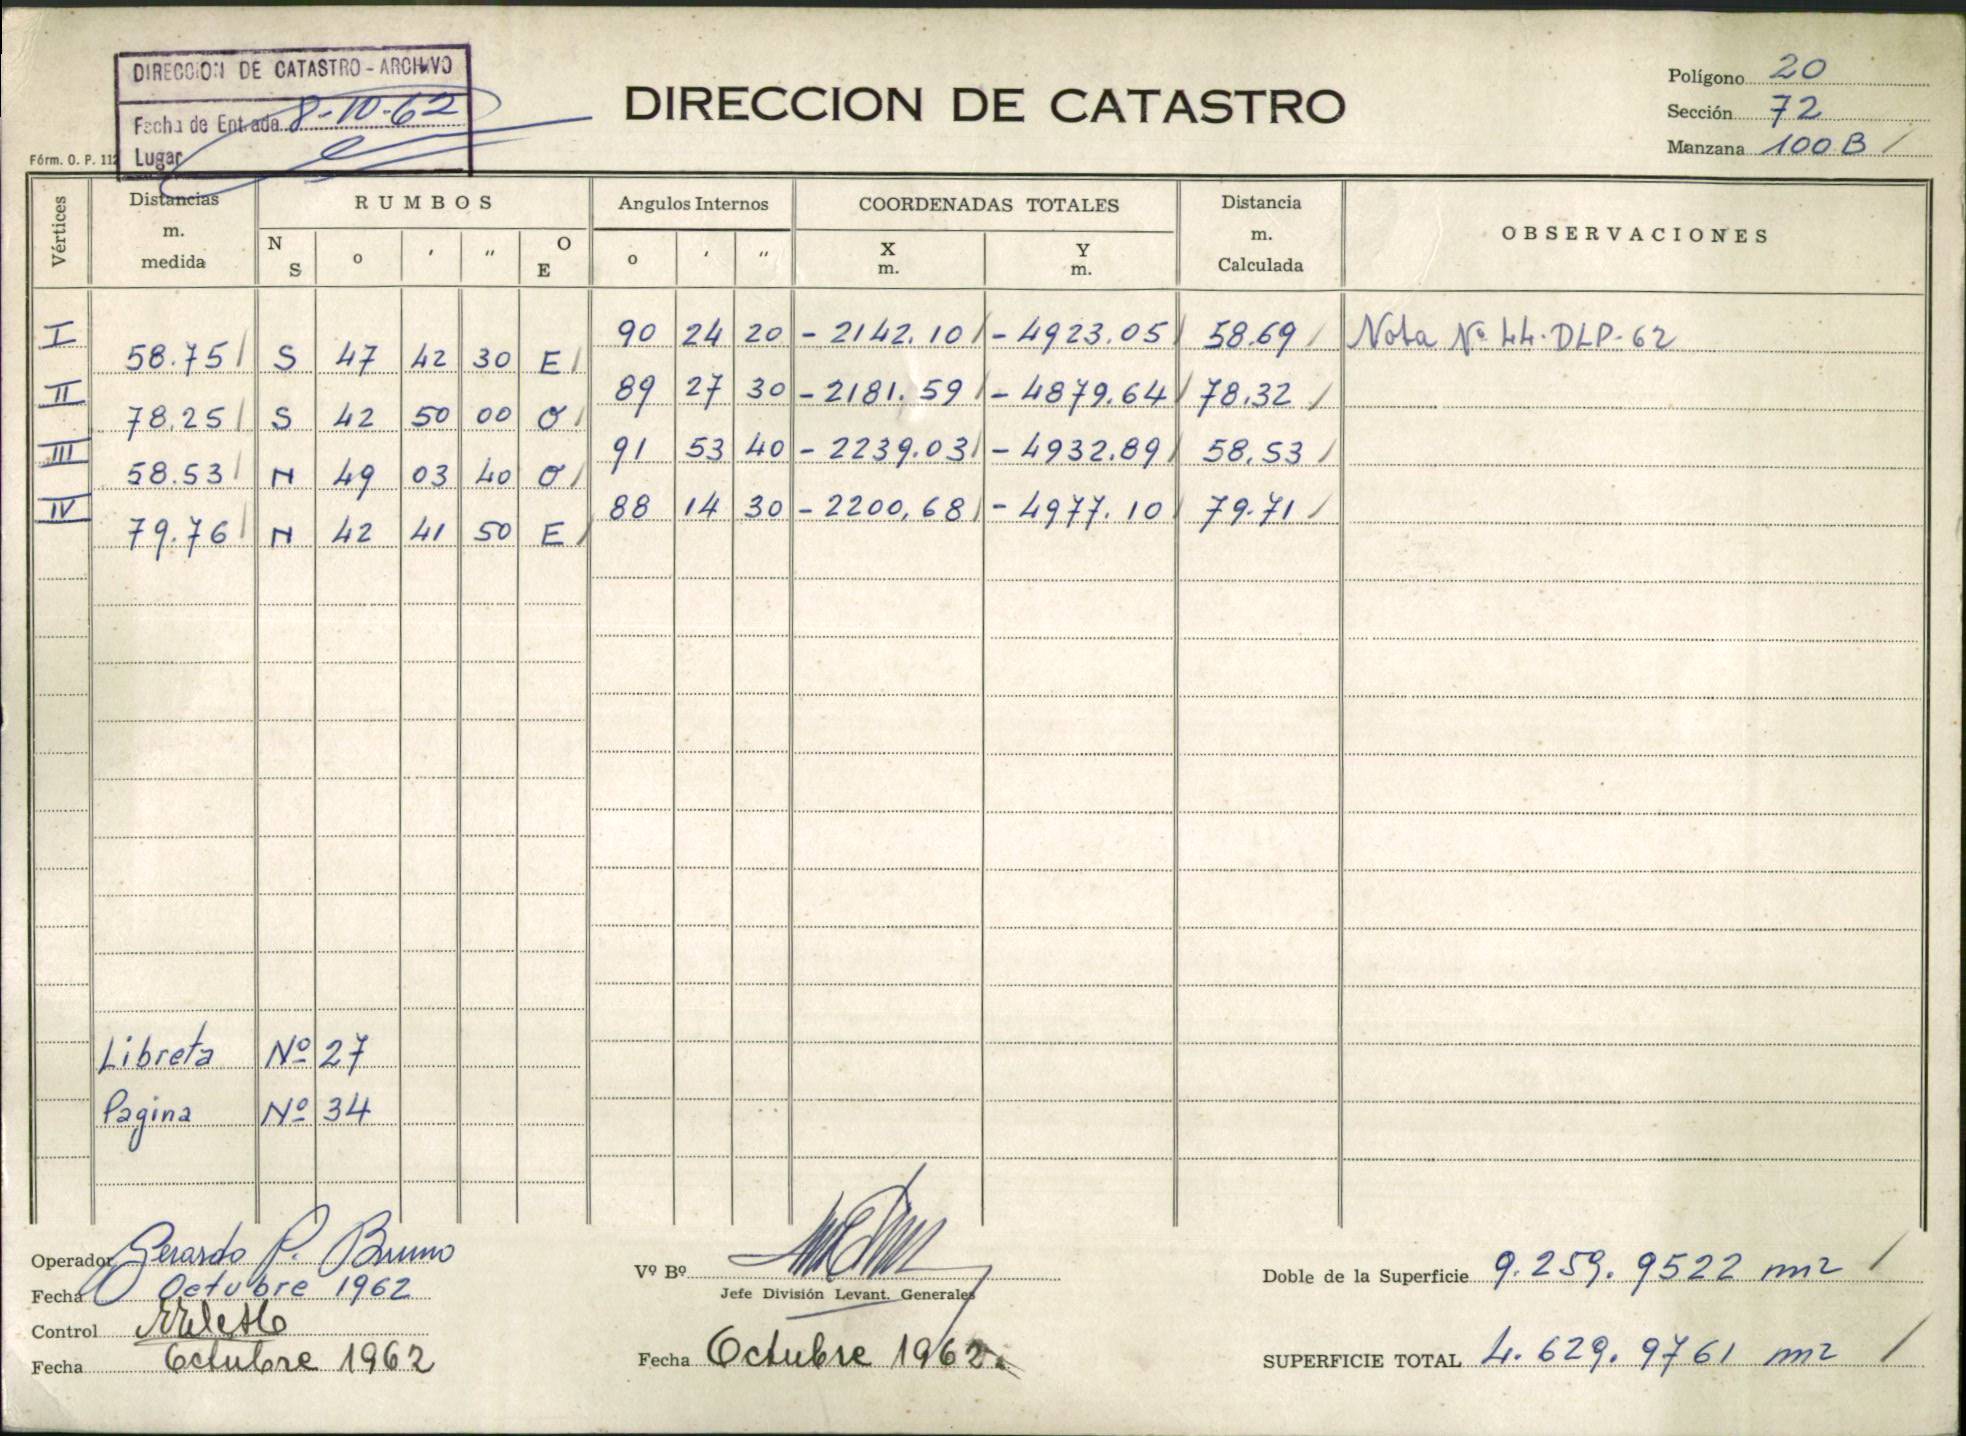 DIRECCION DE CATASTRO - ARCHIVO
Fecha de Entrada 8-10-62
Lugar
Fórm. O. P. 112
DIRECCION DE CATASTRO
Polígono 20
Sección 72
Manzana 100 B /
Vértices Distancias m. medida RUMBOS Angulos Internos COORDENADAS TOTALES Distancia m. Calculada OBSERVACIONES
N S o ′ ″ O E o ′ ″ X m. Y m.
I 90 24 20 - 2142.10 / - 4923.05 / 58.69 / Nota Nº 44-DLP-62
58.75 / S 47 42 30 E /
II 89 27 30 - 2181.59 / - 4879.64 / 78.32 /
78.25 / S 42 50 00 O /
III 91 53 40 - 2239.03 / - 4932.89 / 58.53 /
58.53 / N 49 03 40 O /
IV 88 14 30 - 2200,68 / - 4977.10 / 79.71 /
79.76 / N 42 41 50 E /
Libreta Nº 27
Pagina Nº 34
Operador Gerardo P. Bruno
Fecha Octubre 1962
Control
Fecha Octubre 1962
Vº Bº
Jefe División Levant. Generales
Fecha Octubre 1962.
Doble de la Superficie 9.259.9522 m2 /
SUPERFICIE TOTAL 4.629.9761 m2 /